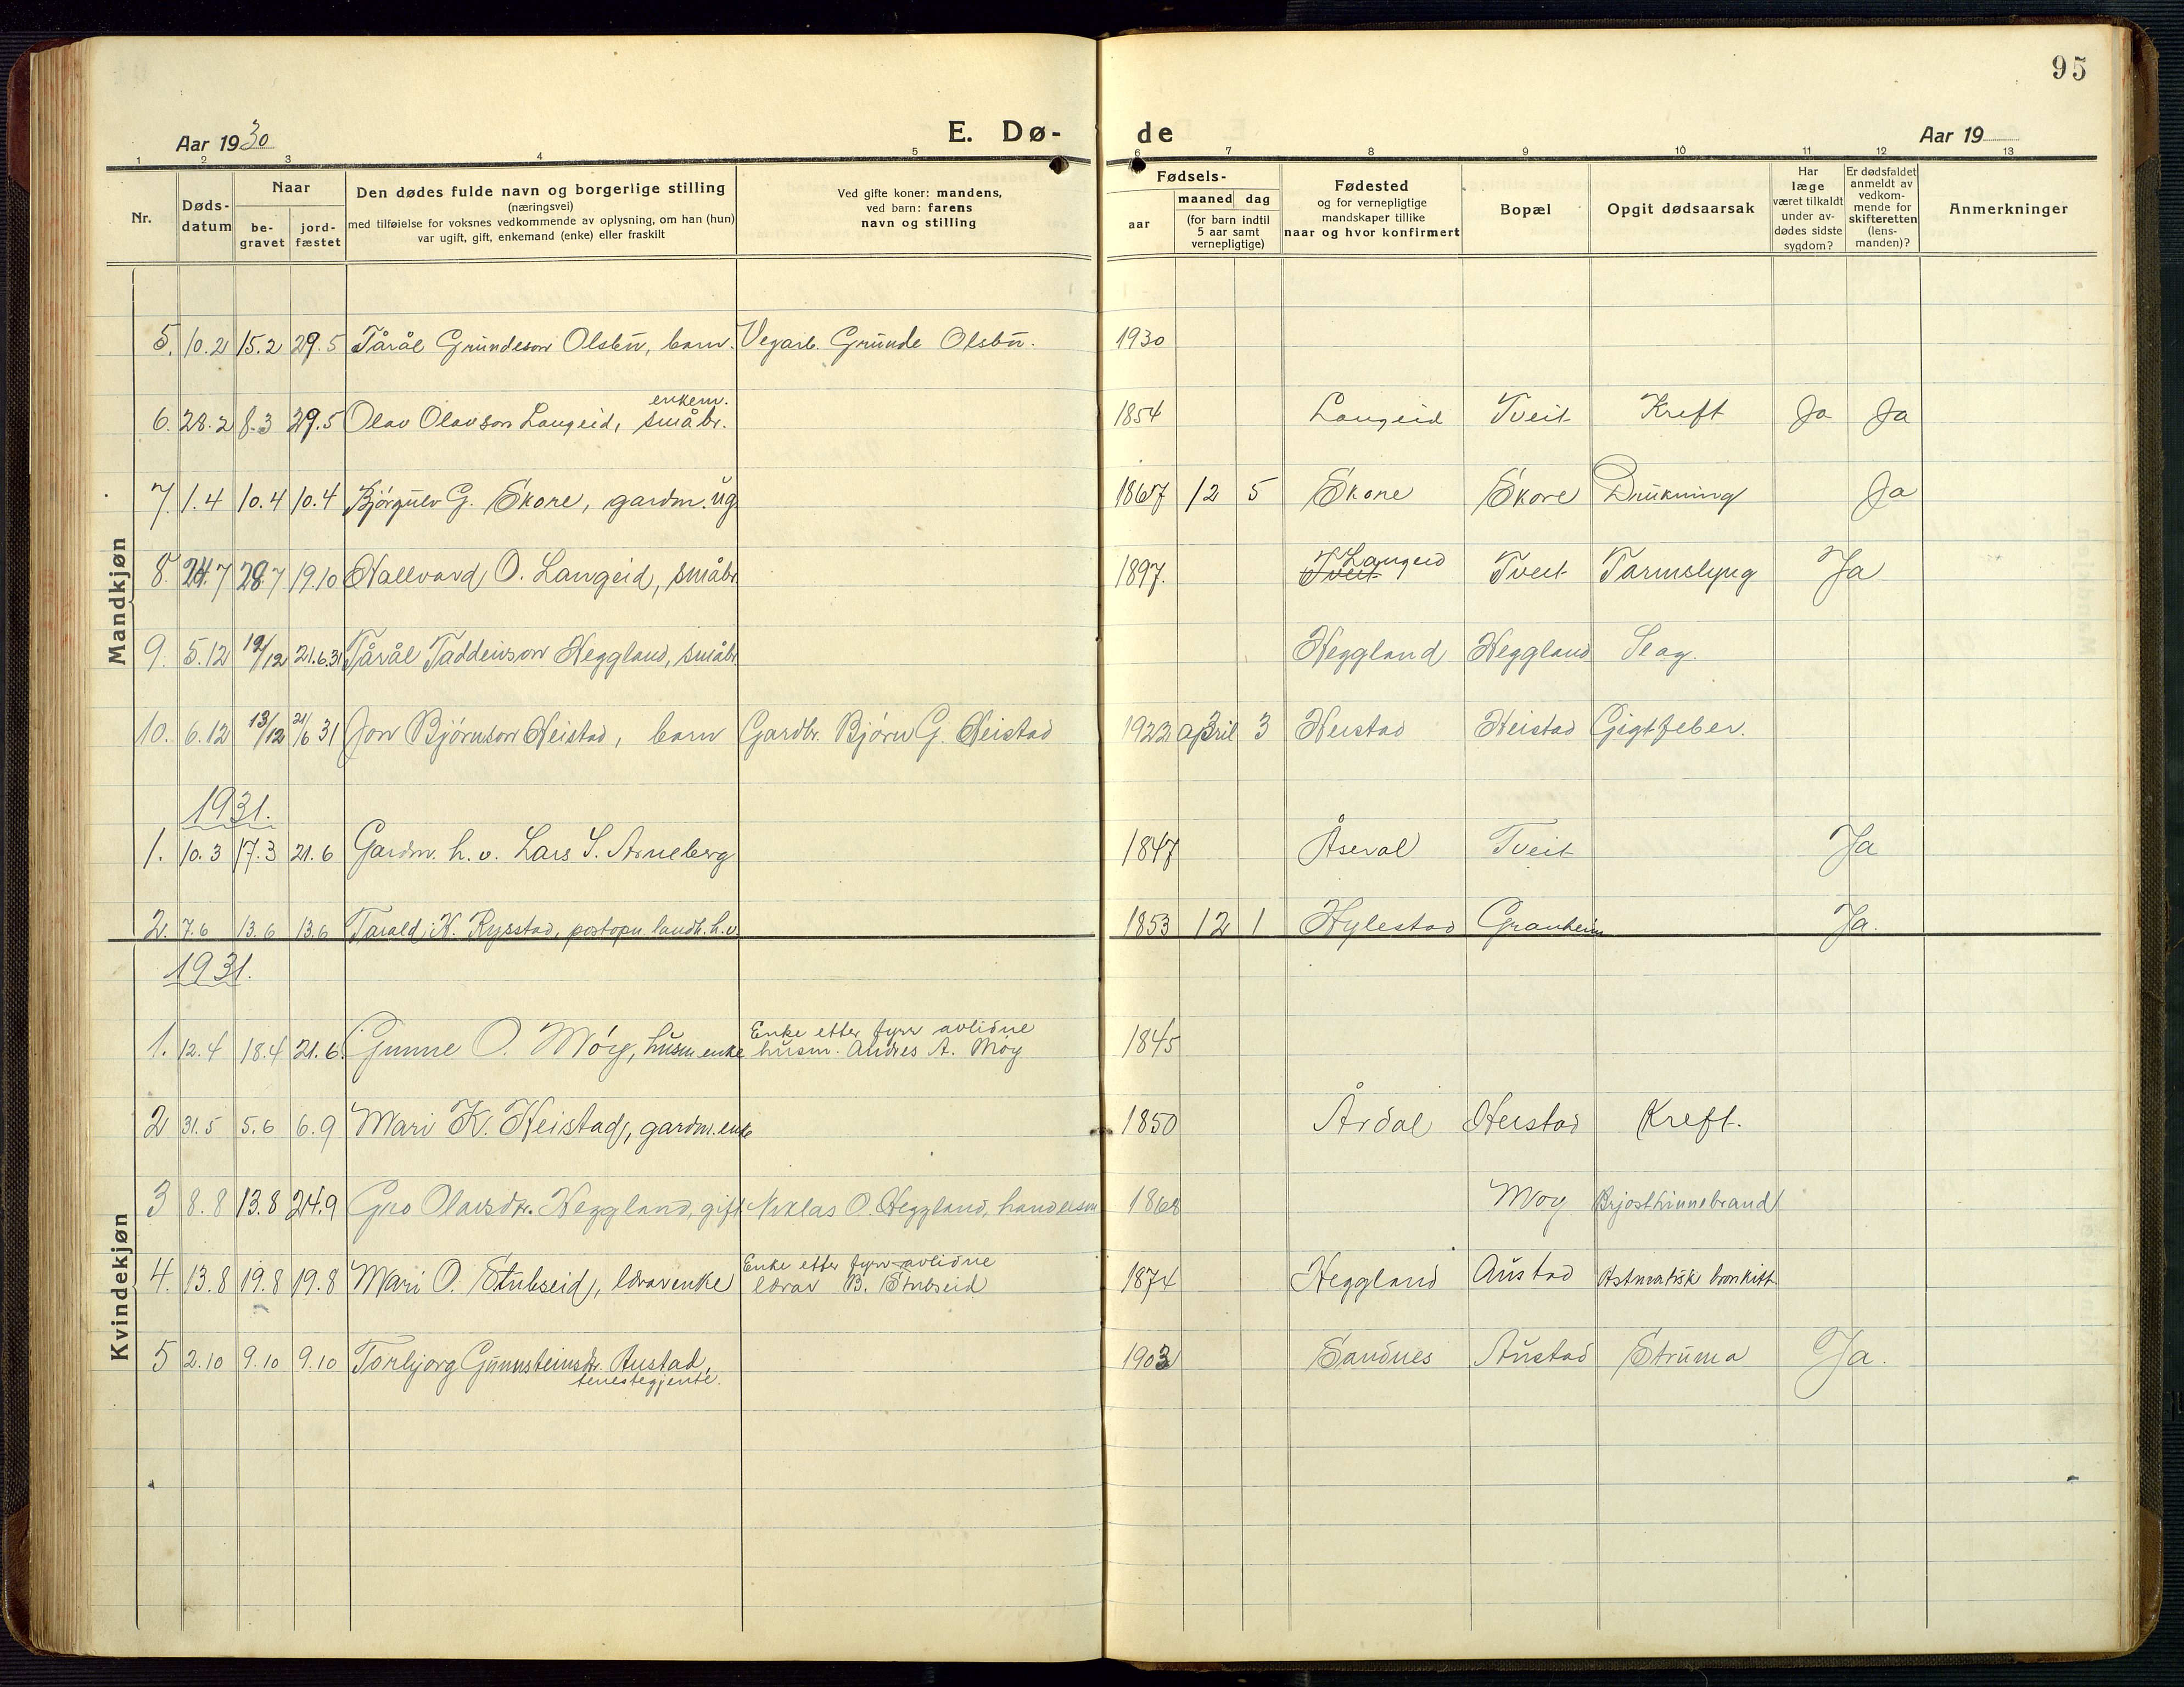 95
Aar 1930 E. Dø- de Aar 19
1 2 3 4 5 6 7 8 9 10 11 12 13
Nr.
Døds-
datum
Naar
be-
gravet
jord-
fæstet
Den dødes fulde navn og borgerlige stilling
(næringsvei)
med tilføielse for voksnes vedkommende av oplysning, om han (hun)
var ugift, gift, enkemand (enke) eller fraskilt
Ved gifte koner: mandens,
ved barn: farens
navn og stilling
Fødsels-
aar
maaned dag
(for barn indtil
5 aar samt
vernepligtige)
Fødested
og for vernepligtige
mandskaper tillike
naar og hvor konfirmert
Bopæl
Opgit dødsaarsak
Har
læge
været tilkaldt
under av-
dødes sidste
sygdom?
Er dødsfaldet
anmeldt av
vedkom-
mende for
skifteretten
(lens-
manden)?
Anmerkninger
Mandkjøn
5. 10.2 15.2 29.5 Tårål Grundeson Olsbu, barn. Vegarb. Grunde Olsbu. 1930
enkem.
6. 28.2 8.3 29.5 Olav Olavson Langeid, småbr. 1854 Langeid Tveit Kreft Ja Ja
7. 1.4 10.4 10.4 Bjørgulv G. Skore, gardm. ug. 1867 12 5 Skore Skore Drukning Ja
8. 24.7 28.7 19.10 Hallvard O. Langeid, småbr. 1897. Tveit Langeid Tveit Tarmslyng Ja
9. 5.12 19/12 21.6.31 Tårål Taddeivson Heggland, småbr Heggland Heggland Slag.
10. 6.12 13/12 21/6 31 Jon Bjørnson Heistad, barn Gardbr. Bjørn G. Heistad 1922 april 3 Heistad Heistad Gigtfeber.
1931.
1. 10.3 17.3 21.6 Gardm. h.v. Lars S. Arneberg 1847 Åseral Tveit Ja
2. 7.6 13.6 13.6 Tarald K. Rysstad, postopn. landh. h.v. 1853 12 1 Hylestad Granheim Ja.
Kvindekjøn
1931.
Enke etter fyrr avlidne
1. 12.4 18.4 21.6. Gunne O. Moy, husm.enke husm. Andres A. Moy 1845
2 31.5 5.6 6.9 Mari K. Heistad, gardm.enke 1850 Årdal Heistad Kreft.
3 8.8 13.8 24.9 Gro Olavsdtr. Heggland, gift Niklas O. Heggland, handelsm 1868 Moy Brjosthinnebrand
Enke etter fyrr avlidne
4. 13.8 19.8 19.8 Mari O. Stubseid, lærarenke lærar B. Stubseid 1874 Heggland Austad Astmatisk bronkitt
5 2.10 9.10 9.10 Torbjorg Gunnsteinsdtr. Austad, 1903 Sandnes Austad Struma Ja.
tenestegjente.